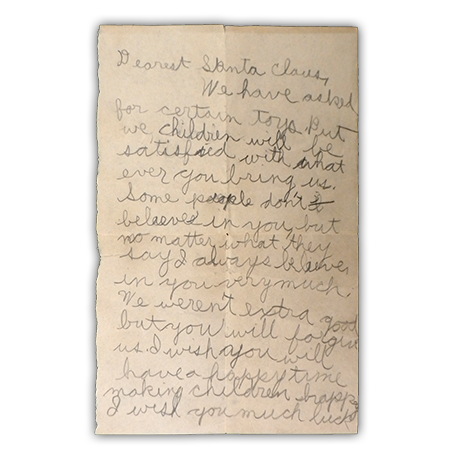 Dearest Santa Claus,
We have asked
for certain toys. But
we children will be
satisfied with what
ever you bring us.
Some people don't
beleeve in you, but
no matter what they
say I always beleeve
in you very much.
We weren't extra good
but you will forgive
us. I wish you will
have a happy time
making children happy
I wish you much luck